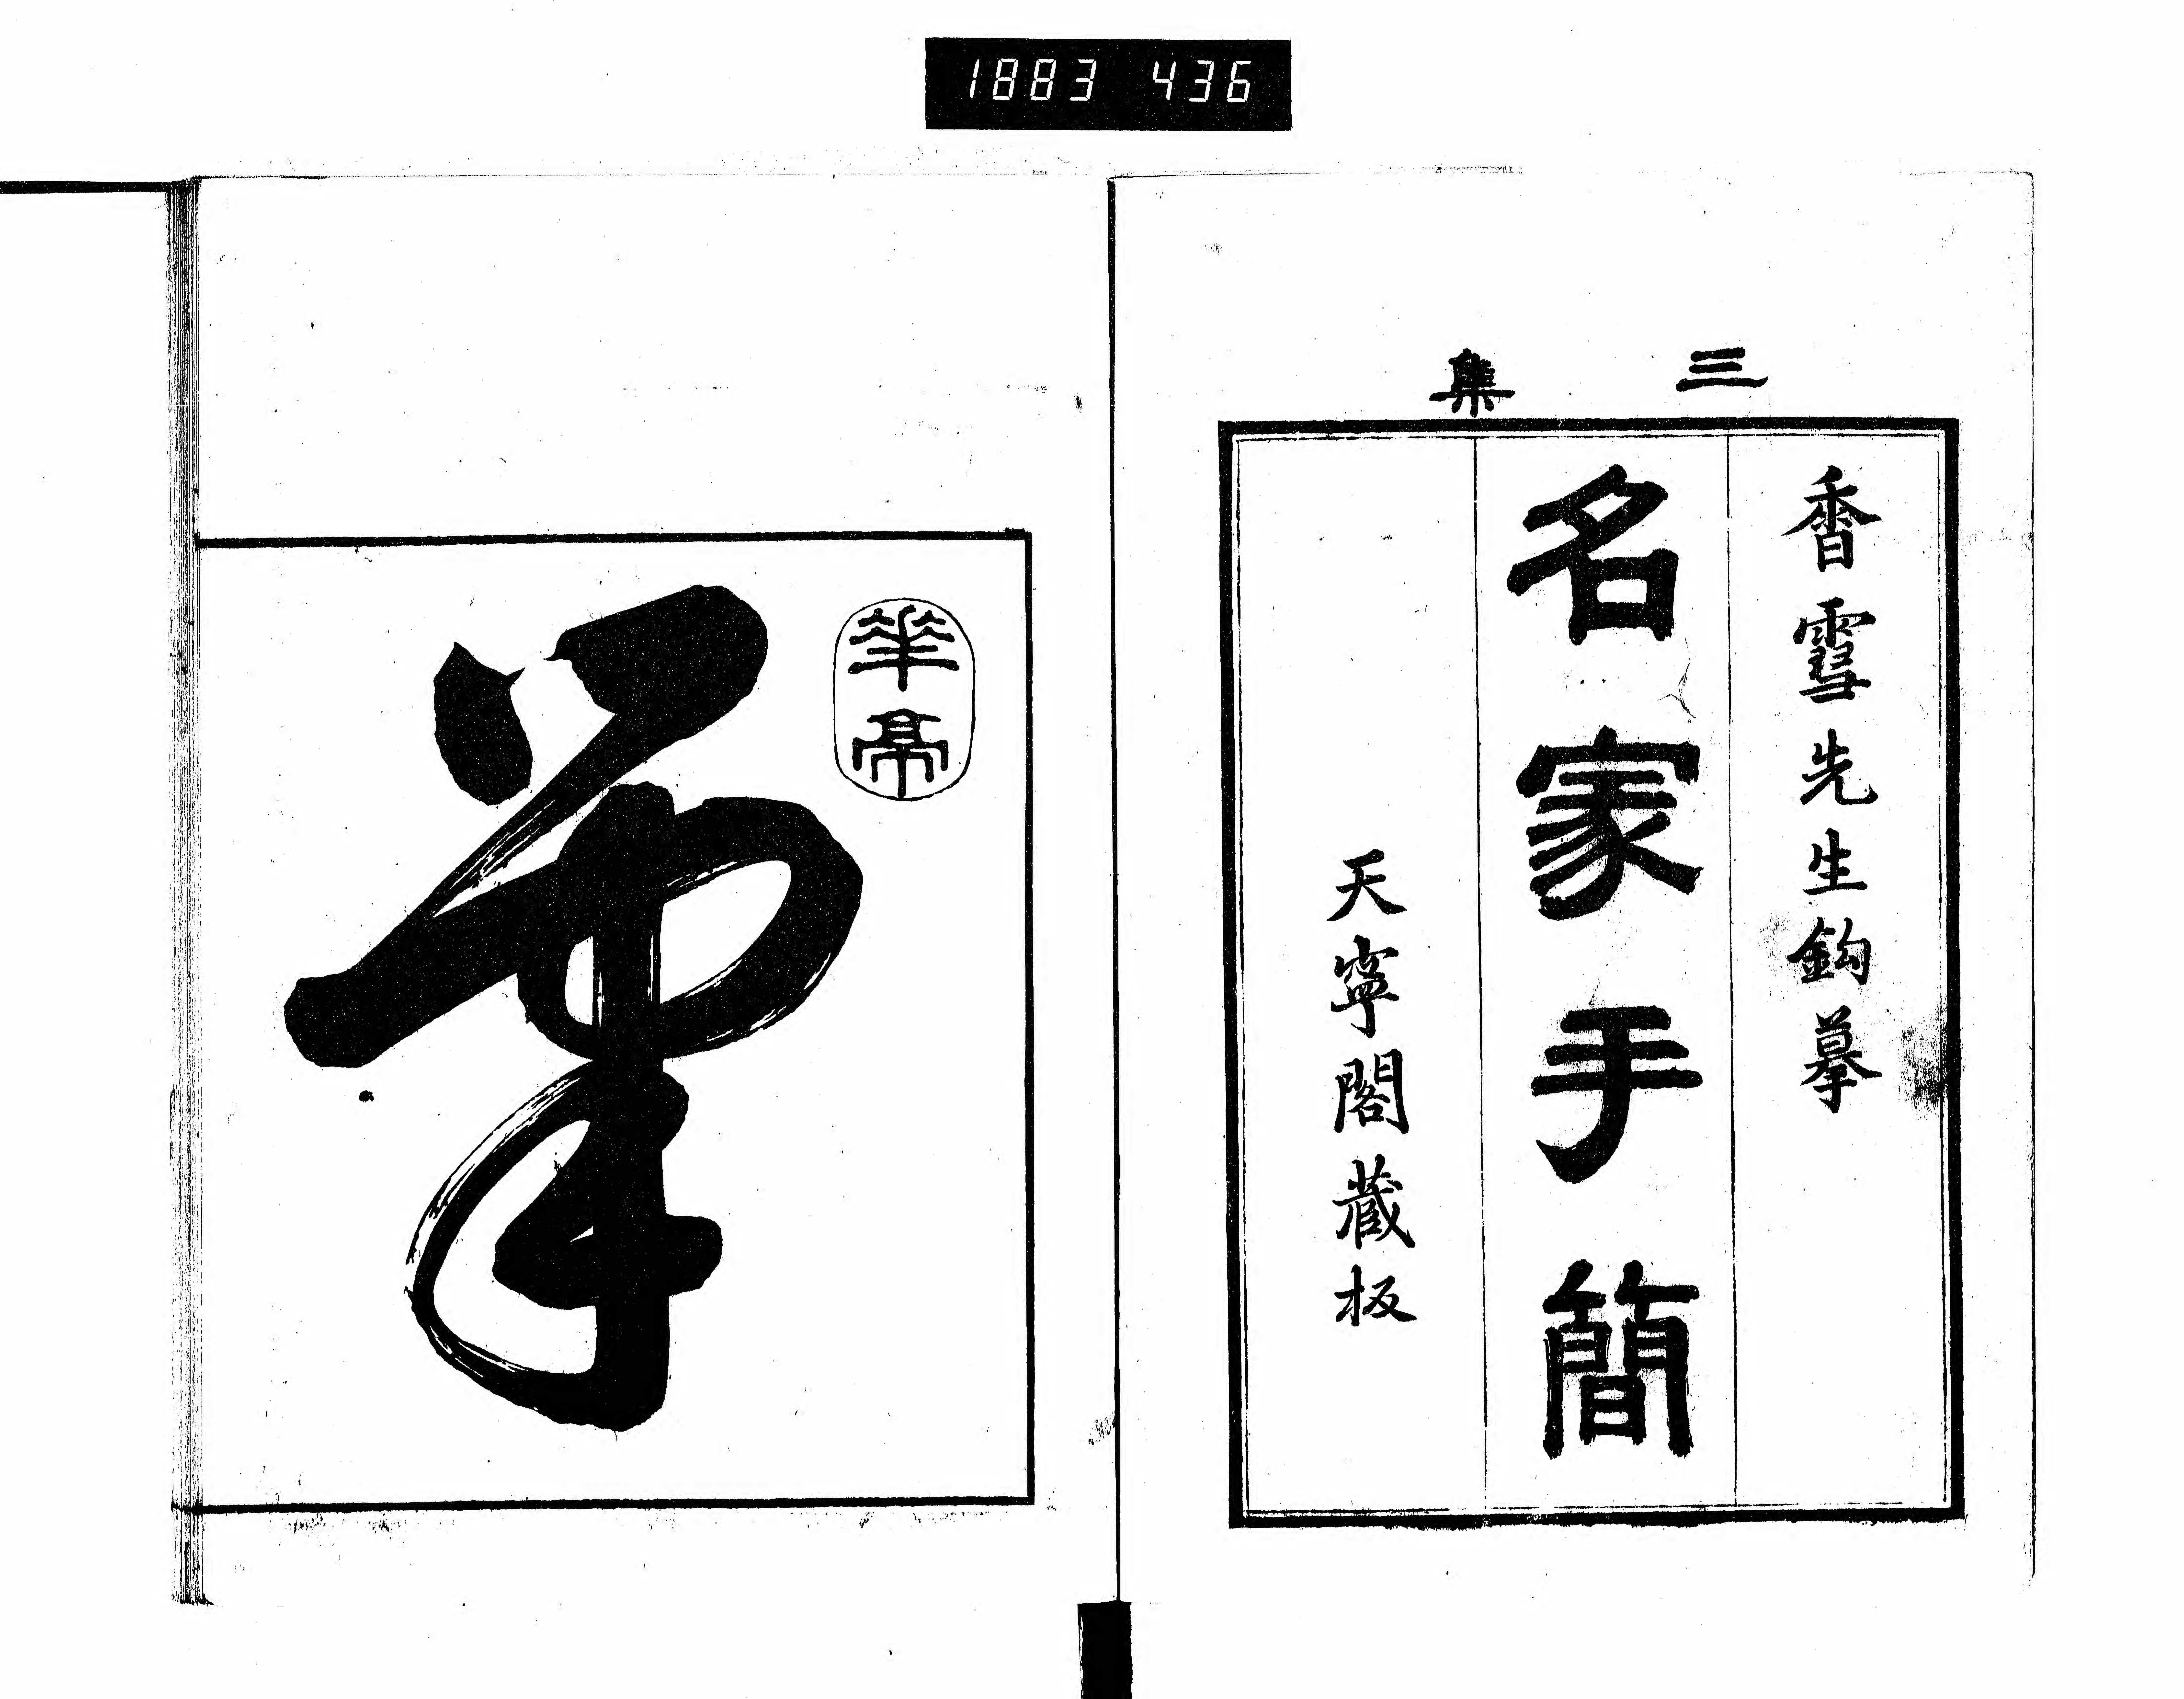 1883 436
三集
香雪先生鈎摹
名家手簡
天寧閣藏板
華亭
筆